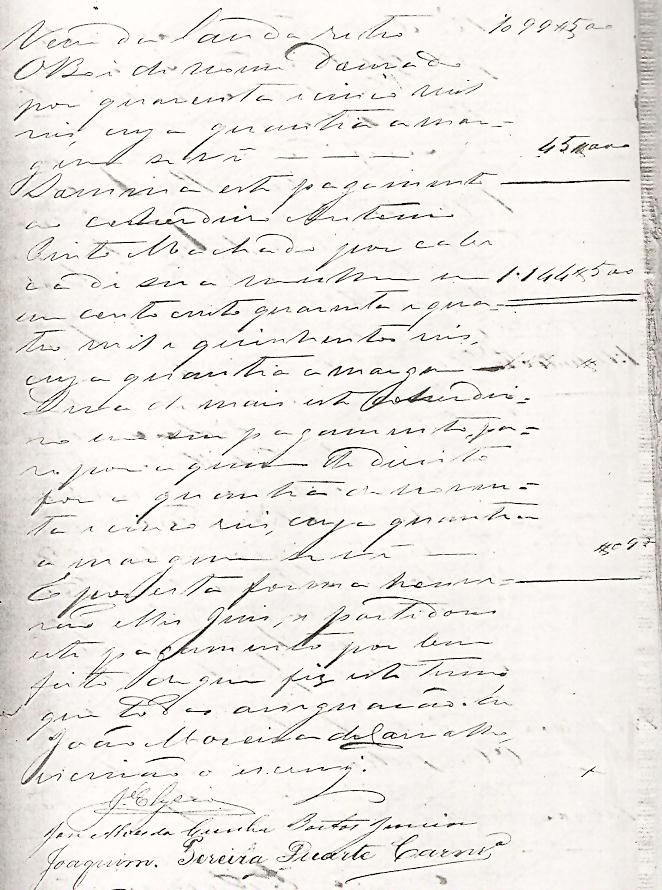 Vem da lauda retro 1:099$500
O Boi de nome Dourado
por quarenta e cinco mil
reis, cuja quantia a mar=
gem se vê 45$000
Somma este pagamento
ao coherdeiro Antonio
Pinto Machado por cabe
ça de sua mulher em 1:144$500
um conto cento quarenta e qua=
tro mil e quinhentos reis,
cuja quantia a margem
Leva de mais este Coherdei=
ro em seu pagamento, pa=
ra por a quem de direito
for a quantia de noven=
ta e cinco reis, cuja quantia
a margem se vê
E por esta forma houve=
rão elle Juiz, e partidores
este pagamento por bem
feito, do que fiz este termo
que todos assignarão. Eu
João Moreira de Carvalho,
escrivão o escrevy.
José da Cunha Bastos Junior
Joaquim Pereira Duarte Carnrº